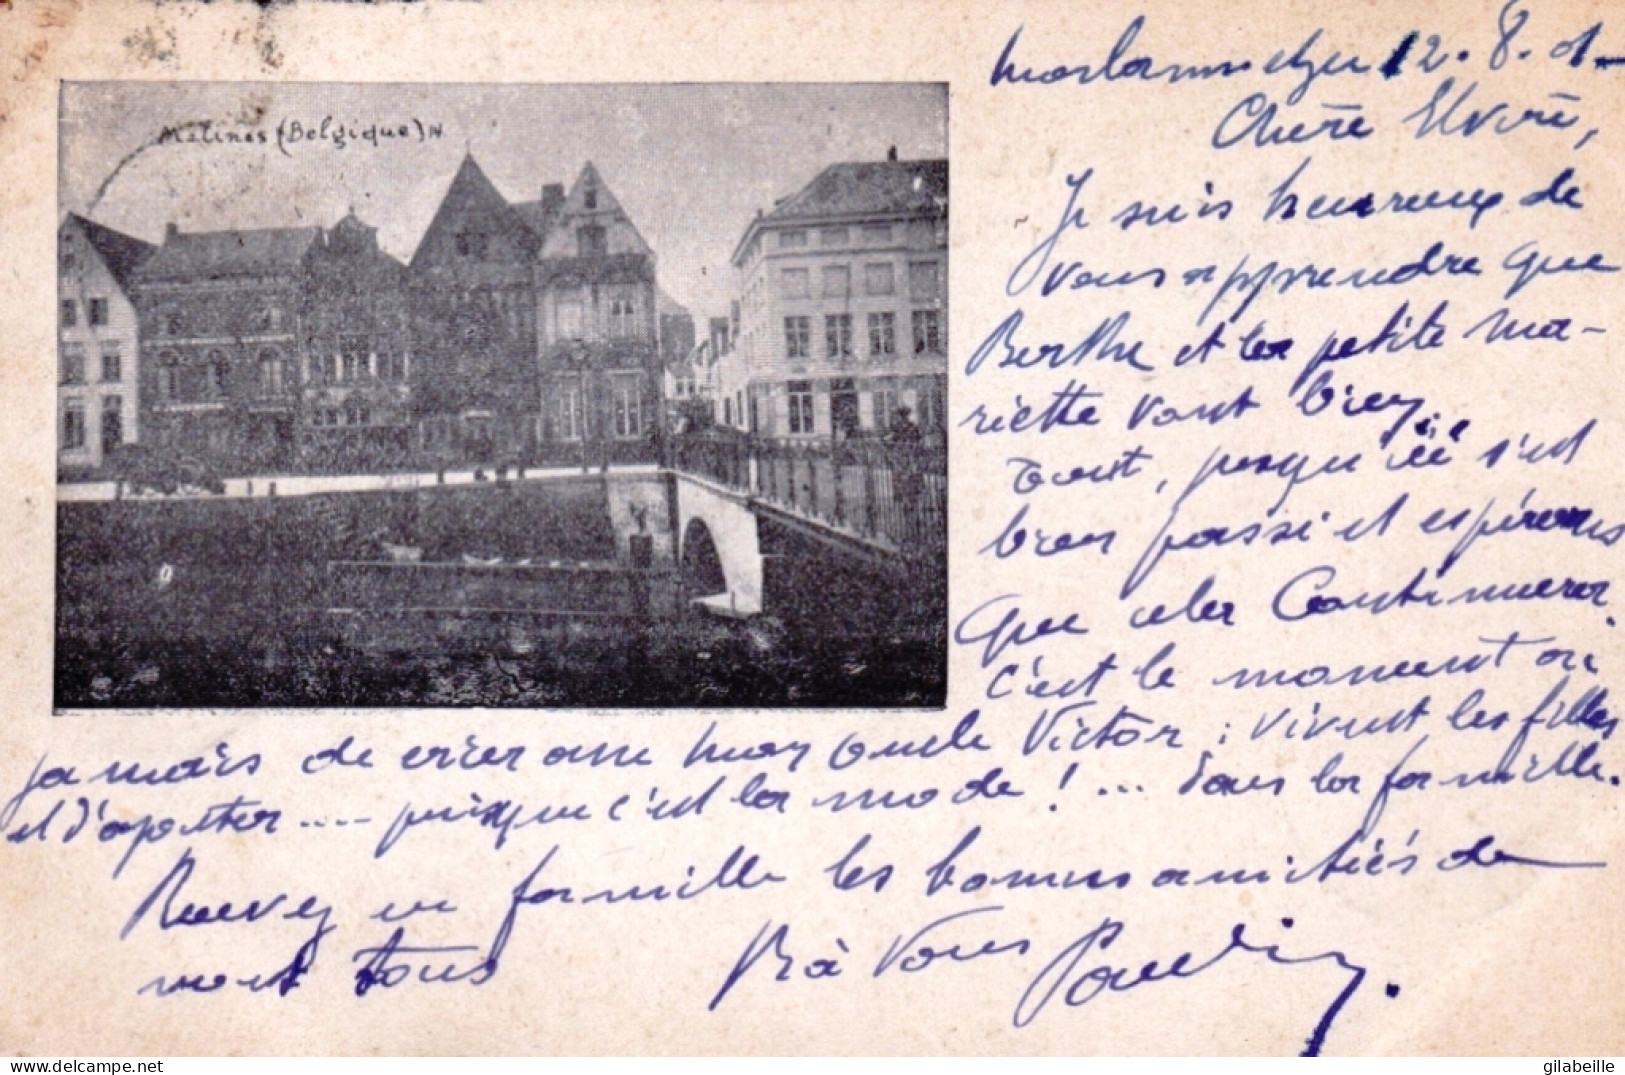 Malines (Belgique) N.
Morlanwelz 12.8.01
Chère Elvire,
Je suis heureux de
vous apprendre que
Berthe et la petite Ma-
riette vont bien
tout, jusqu'ici s'est
bien passé et espérons
que cela Continuera.
C'est le moment ou
jamais de crier mon oncle Victor : vivent les filles
et d'ajouter .... puisque c'est la mode ! ... dans la famille.
Recevez en famille les bonnes amitiés de
nous tous
Bt à vous Paulin.
gilabeille